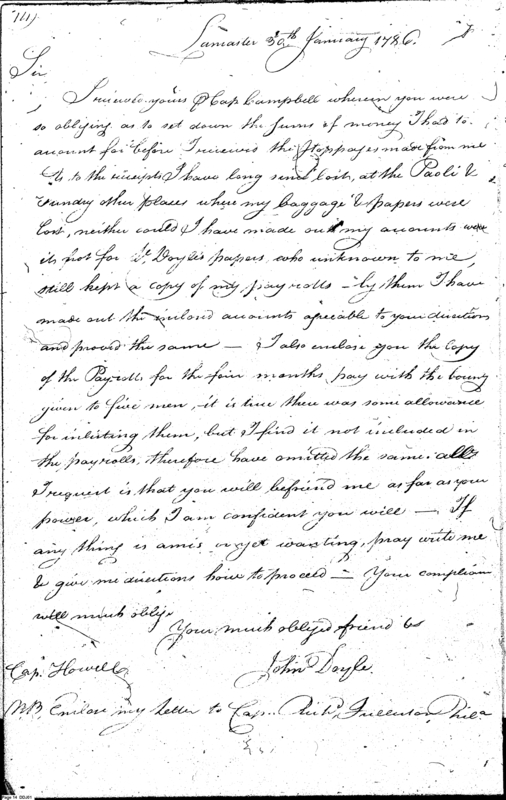 (14)
Lancaster 30th January 1786.
Sir
I received yours ⅌ Cap Campbell wherein you were
so obliging as to set down the sums of money I had to
account for before I received the stoppages made from me
As to the receipts, I have long since lost, at the Paoli &
sundry other places where my baggage & papers were
lost, neither could I have made out my accounts were
it not for Doyle's papers, who unknown to me,
still kept a copy of my payrolls – by them I have
made out the inclosed accounts agreeable to your direction
and proved the same — I also enclose you the Copy
of the Payrolls for the four months pay with the bounty
given to five men, it is true there was some allowance
for inlisting them, but I find it not included in
the payrolls, therefore have omitted the same. all
I request is that you will befriend me as far as your
power, which I am confident you will — If
any thing is amis or yet wanting, pray write me
& give me directions how to proceed — Your complian
will much oblige
Your much obliged friend
Cap. Howell
John Doyle.
NB, Enclose my letter to Cap. Richd. Fullerton, Phila
Page 14